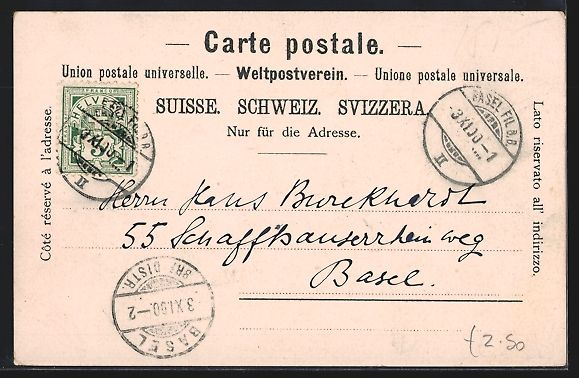 — Carte postale. —
Union postale universelle. — Weltpostverein. — Unione postale universale.
SUISSE. SCHWEIZ. SVIZZERA.
Nur für die Adresse.
Côté réservé à l'adresse.
Lato riservato all' indirizzo.
FRANCO
HELVETIA
5
II
BASEL FIL. B.B.
3 XI.00.-1
II
Herrn Hans Burckhardt
55 Schaffhauserrheinweg
Basel.
BRF. DISTR.
3 XI.00.-2
BASEL
2.50